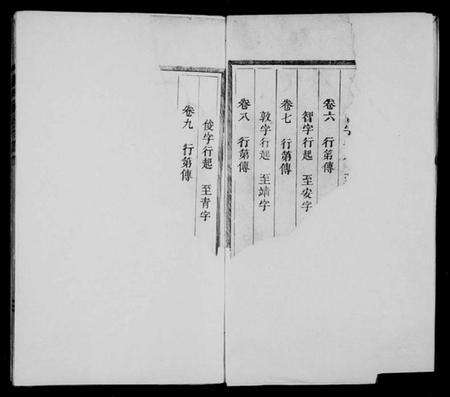 卷六 行第傳
智字行起 至安字
卷七 行第傳
敦字行起 至靖字
卷八 行第傳
俊字行起 至青字
卷九 行第傳